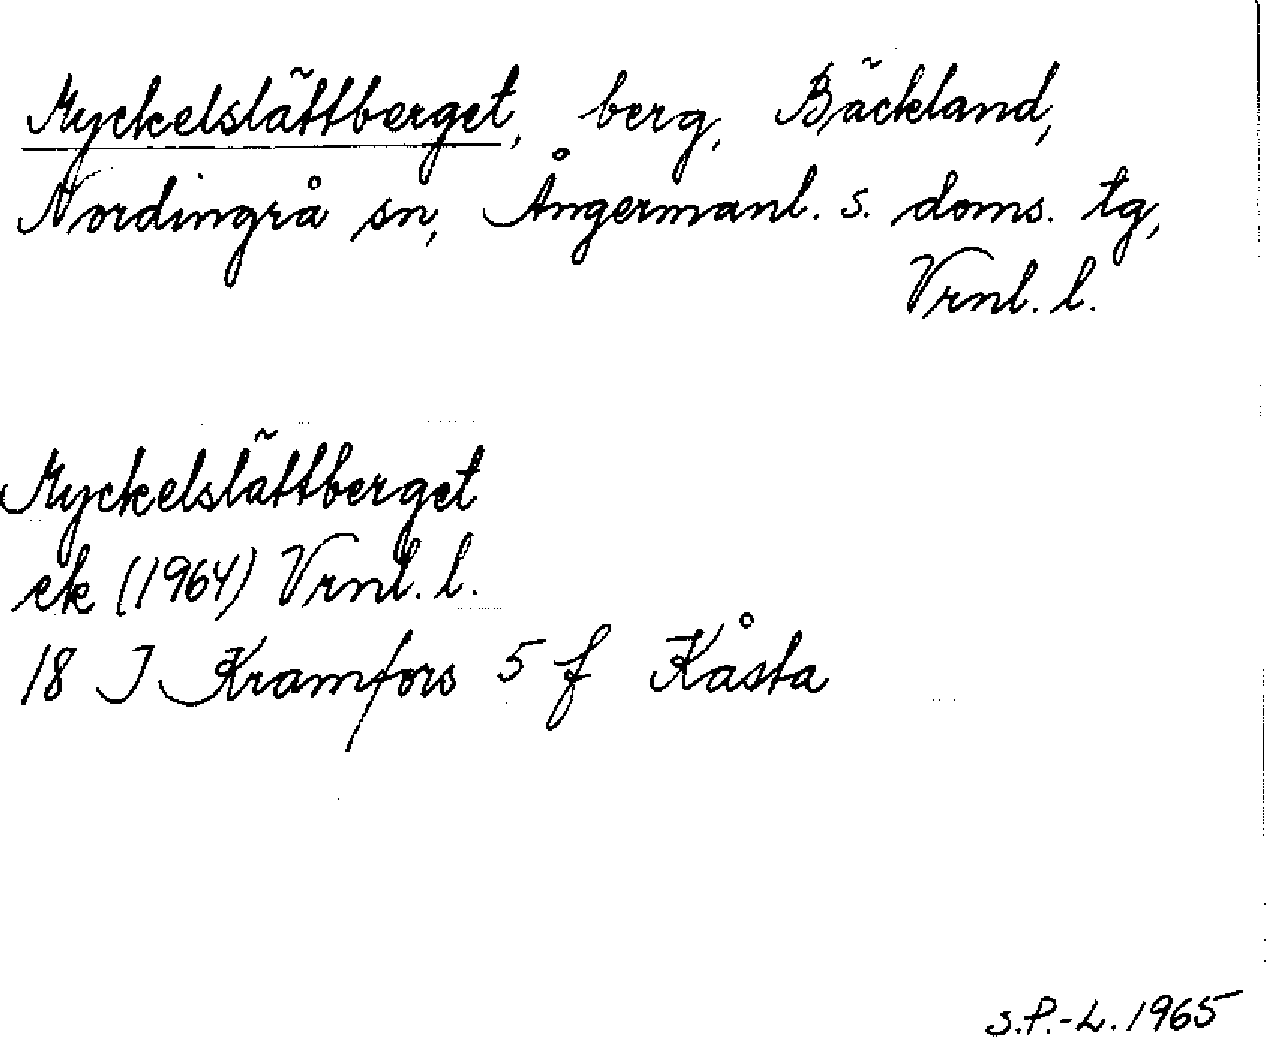 Myckelslättberget, berg, Bäckland,
Nordingrå sn, Ångermanl. s. doms. tg,
Vrnl. l.
Myckelslättberget
ek (1964) Vrnl. l.
18 J Kramfors 5 f Kåsta
S.P.-L. 1965